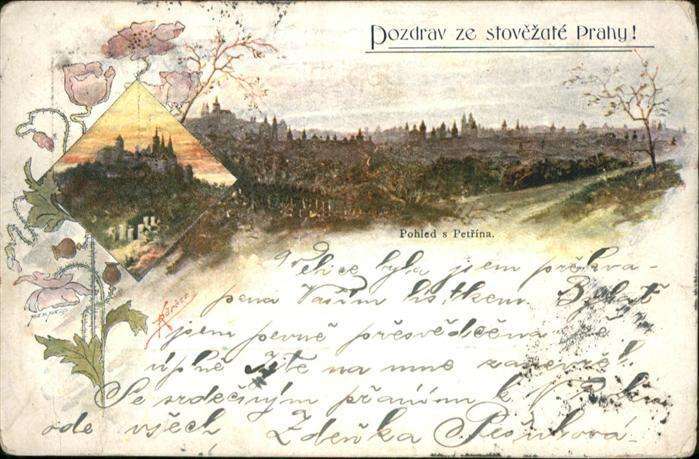 Pozdrav ze stověžaté Prahy!
Pohled s Petřína.
Velice byla jsem překva-
pena Vaším lístkem. Byla
jsem pevně přesvědčena že
úplně jste na mne zapoměl.
Se srdečným přáním k
ode všech Zdeňka